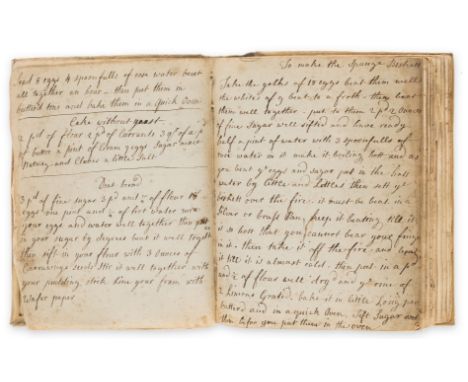 8 eggs 4 spoonfulls of rose water beat
all together an hour - then put them in
butterd tins and bake them in a Quick Oven
Cake without yeast
2 pd of flour 2 pd of Currants 3 qrs of a pd
of butter a pint of Cream 7 eggs Sugar mace
Nutmeg and Cloves a little Salt
bread
3 pd of fine sugar 2 pd and of flour 18
eggs one pint and of hot water mix
your eggs and water well together then put
in your sugar by degrees beat it well together
then sift in your flour with 3 Ounces of
Carraway Seeds Stir it well together with
your pudding stick line your fram with
wafer paper
To make the Spunge Biskett
Take the yolks of 18 eggs beat them well
the whites of 9 beat to a froth - then beat
them well together - put to them 2 pd 2 Ounces
of fine Sugar well sifted and have ready
half a pint of water with 3 spoonfulls of
rose water in it make it boyling hott and as
you beat ye eggs and sugar put in the hott
water by little and little then sett ye
over the fire. it must be beat in a
Silver or brass keep it beating till it
is so hott that you cannot bear your finger
in it. then take it off the fire and beat
it till it is almost cold. then put in a pd
and of flour well dry'd and ye rine of
2 Grated. bake it in little Long
butterd and in a quick Oven. Sift Sugar over
them before you put them in the oven